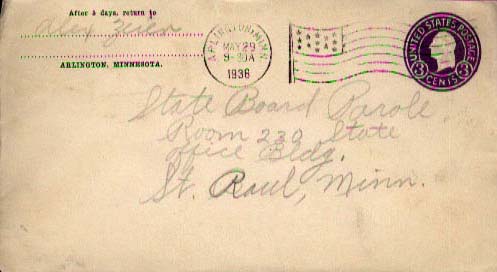 After 5 days, return to
ARLINGTON, MINNESOTA.
ARLINGTON, MINN.
MAY 29
9-30A
1936
UNITED STATES POSTAGE
3 CENTS 3
State Board Parole,
Room 230 State
office Bldg.
St. Paul, Minn.